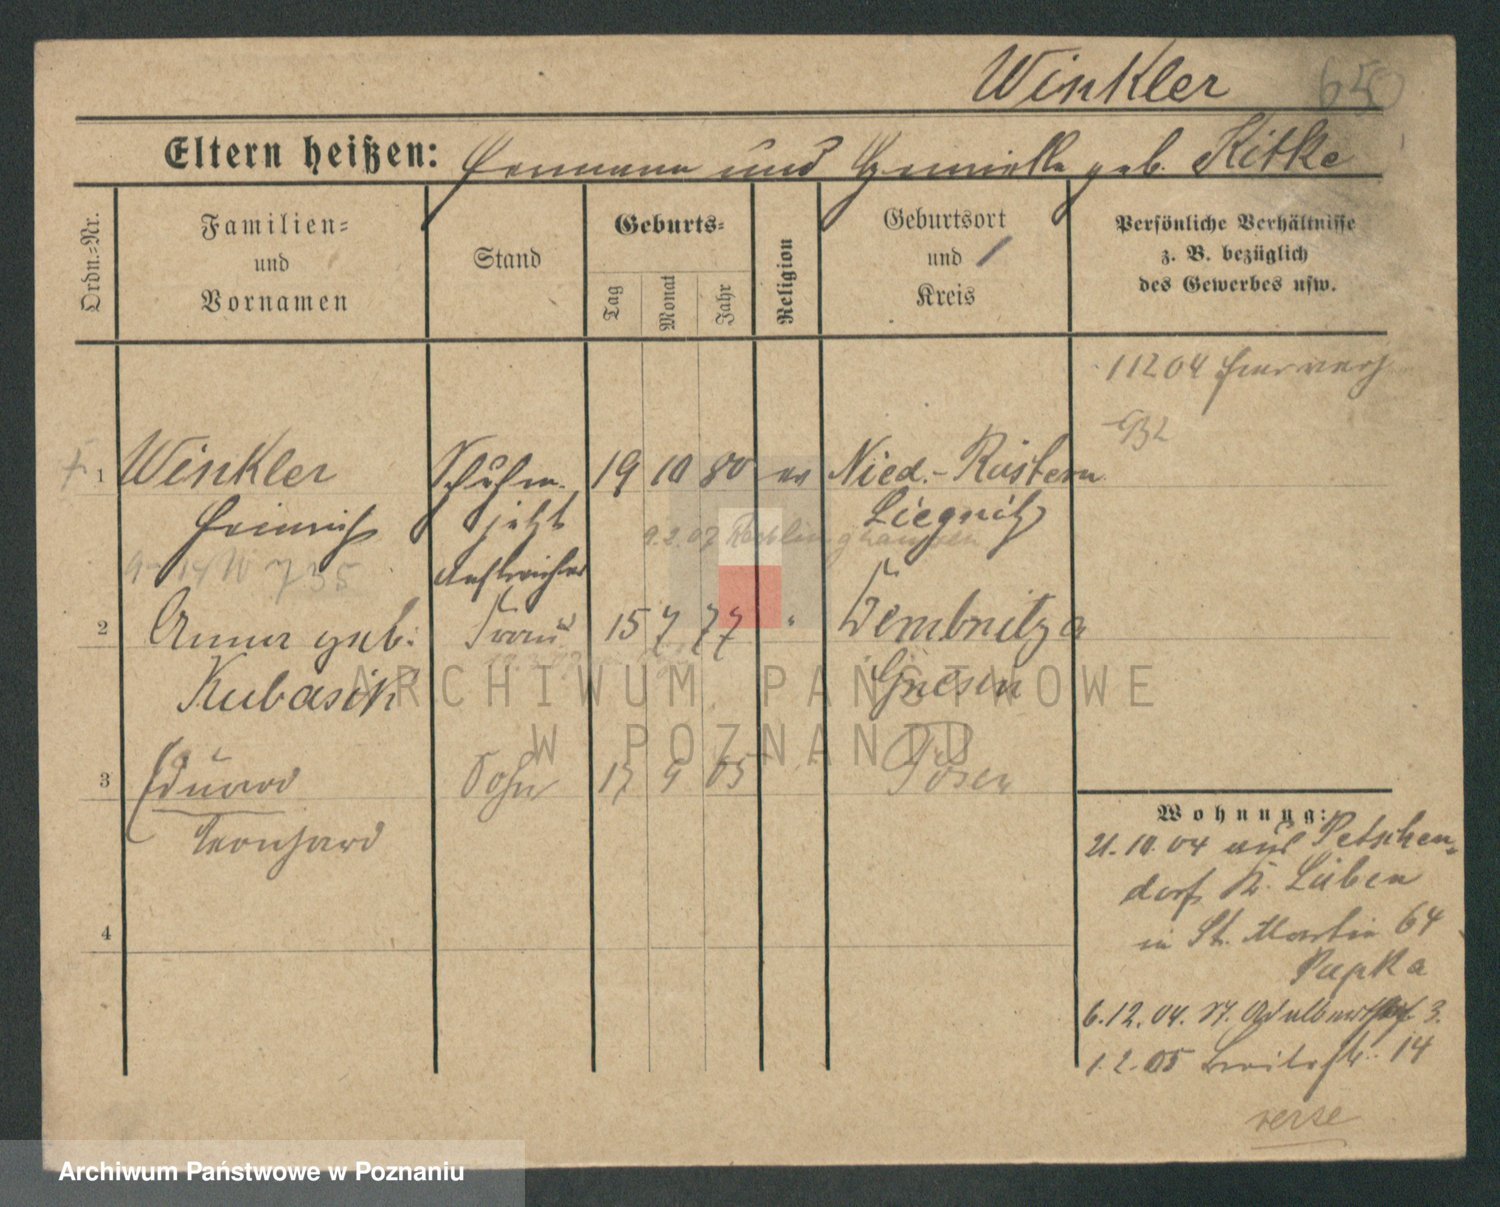 Winkler 650
Eltern heißen: Hermann und geb. Kitke
Ordn.=Nr.
Familien=
und
Vornamen
Stand
Geburts=
Tag
Monat
Jahr
Religion
Geburtsort
und
Kreis
Persönliche Verhältnisse
z. B. bezüglich
des Gewerbes usw.
11204
1 Winkler Schuhm. 19 10 80 ev Nied.-Rüstern
Heinrich jetzt Liegnitz
9.2.07
735
2 Anna geb. Frau 15 7 77 " Wembnitza
Kubasik Gnesen
3 Eduard Sohn 17 9 05 Posen
Leonhard
4
Wohnung:
21.10.04 aus Petschken-
dorf K. Lüben
in St. Martin 64
Pupka
6.12.04. St. Adalbertstr. 3.
1.2.05 Breitestr. 14
verse
ARCHIWUM PAŃSTWOWE
W POZNANIU
Archiwum Państwowe w Poznaniu